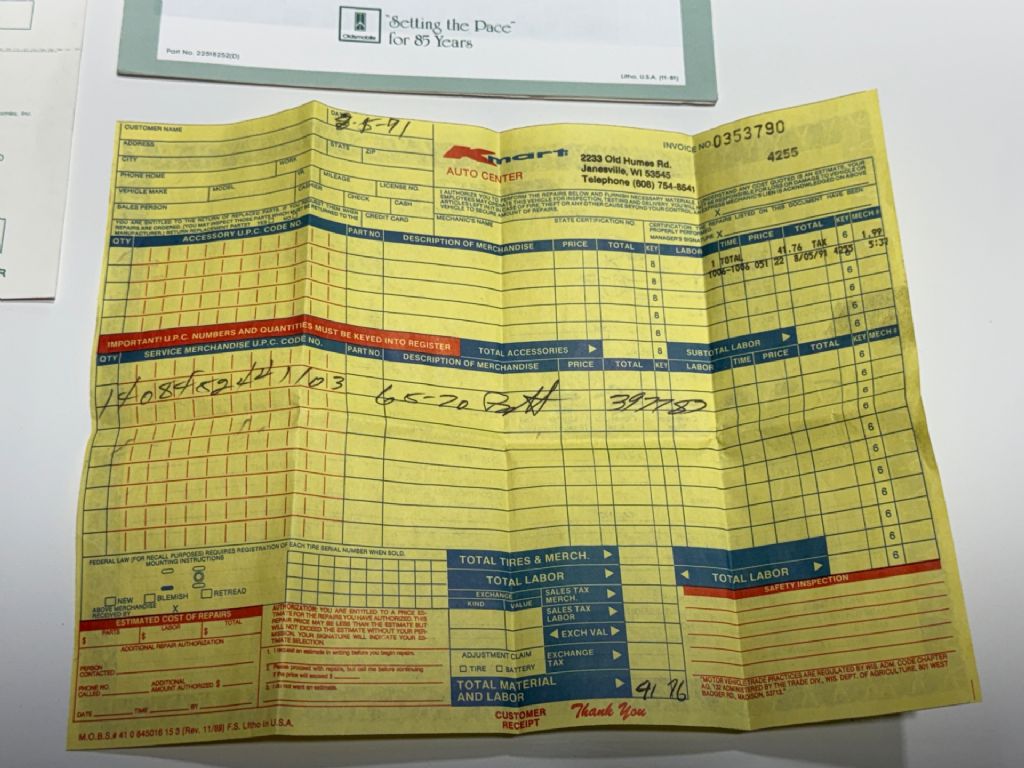 "Setting the Pace"
for 85 Years
Oldsmobile
Part No. 22518252(D)
Litho. U.S.A. (11-81)
CUSTOMER NAME
DATE
8-5-91
ADDRESS
STATE ZIP
CITY
WORK
PHONE HOME
YR.
MILEAGE
VEHICLE MAKE MODEL
CASHIER CHECK LICENSE NO.
CASH
SALES PERSON
CREDIT CARD
MECHANIC'S NAME
STATE CERTIFICATION NO.
Kmart
AUTO CENTER
2233 Old Humes Rd.
Janesville, WI 53545
Telephone (608) 754-8541
INVOICE NO. 0353790
4255
QTY ACCESSORY U.P.C. CODE NO. PART NO. DESCRIPTION OF MERCHANDISE PRICE TOTAL KEY LABOR TIME PRICE TOTAL KEY MECH #
41.76 TAX 1.99
1 TOTAL
1006-1006 051 22 8/05/91 4255 5:37
IMPORTANT! U.P.C. NUMBERS AND QUANTITIES MUST BE KEYED INTO REGISTER
TOTAL ACCESSORIES
SUBTOTAL LABOR
QTY SERVICE MERCHANDISE U.P.C. CODE NO. PART NO. DESCRIPTION OF MERCHANDISE PRICE TOTAL KEY LABOR TIME PRICE TOTAL KEY MECH #
65-70
FEDERAL LAW (FOR RECALL PURPOSES) REQUIRES REGISTRATION OF EACH TIRE SERIAL NUMBER WHEN SOLD.
MOUNTING INSTRUCTIONS
NEW BLEMISH RETREAD
ABOVE MERCHANDISE
RECEIVED BY X
ESTIMATED COST OF REPAIRS
PARTS LABOR TOTAL
$ $ $
ADDITIONAL REPAIR AUTHORIZATION
PERSON
CONTACTED
PHONE NO.
CALLED
ADDITIONAL
AMOUNT AUTHORIZED $
DATE TIME BY
AUTHORIZATION: YOU ARE ENTITLED TO A PRICE ES-
TIMATE FOR THE REPAIRS YOU HAVE AUTHORIZED. THE
REPAIR PRICE MAY BE LESS THAN THE ESTIMATE BUT
WILL NOT EXCEED THE ESTIMATE WITHOUT YOUR PER-
MISSION. YOUR SIGNATURE WILL INDICATE YOUR ES-
TIMATE SELECTION.
1. I request an estimate in writing before you begin repairs.
2. Please proceed with repairs, but call me before continuing
if the price will exceed $
3. I do not want an estimate.
TOTAL TIRES & MERCH.
TOTAL LABOR
EXCHANGE
KIND VALUE
SALES TAX
MERCH.
SALES TAX
LABOR
EXCH VAL
ADJUSTMENT CLAIM
TIRE BATTERY
EXCHANGE
TAX
TOTAL MATERIAL
AND LABOR
41 76
TOTAL LABOR
SAFETY INSPECTION
"MOTOR VEHICLE TRADE PRACTICES ARE REGULATED BY WIS. ADM. CODE CHAPTER
AG. 132 ADMINISTERED BY THE TRADE DIV., WIS. DEPT. OF AGRICULTURE, 801 WEST
BADGER RD., MADISON, 53713."
CUSTOMER
RECEIPT
Thank You
M.O.B.S.# 41 0 645016 15 3 (Rev. 11/89) F.S. Litho in U.S.A.